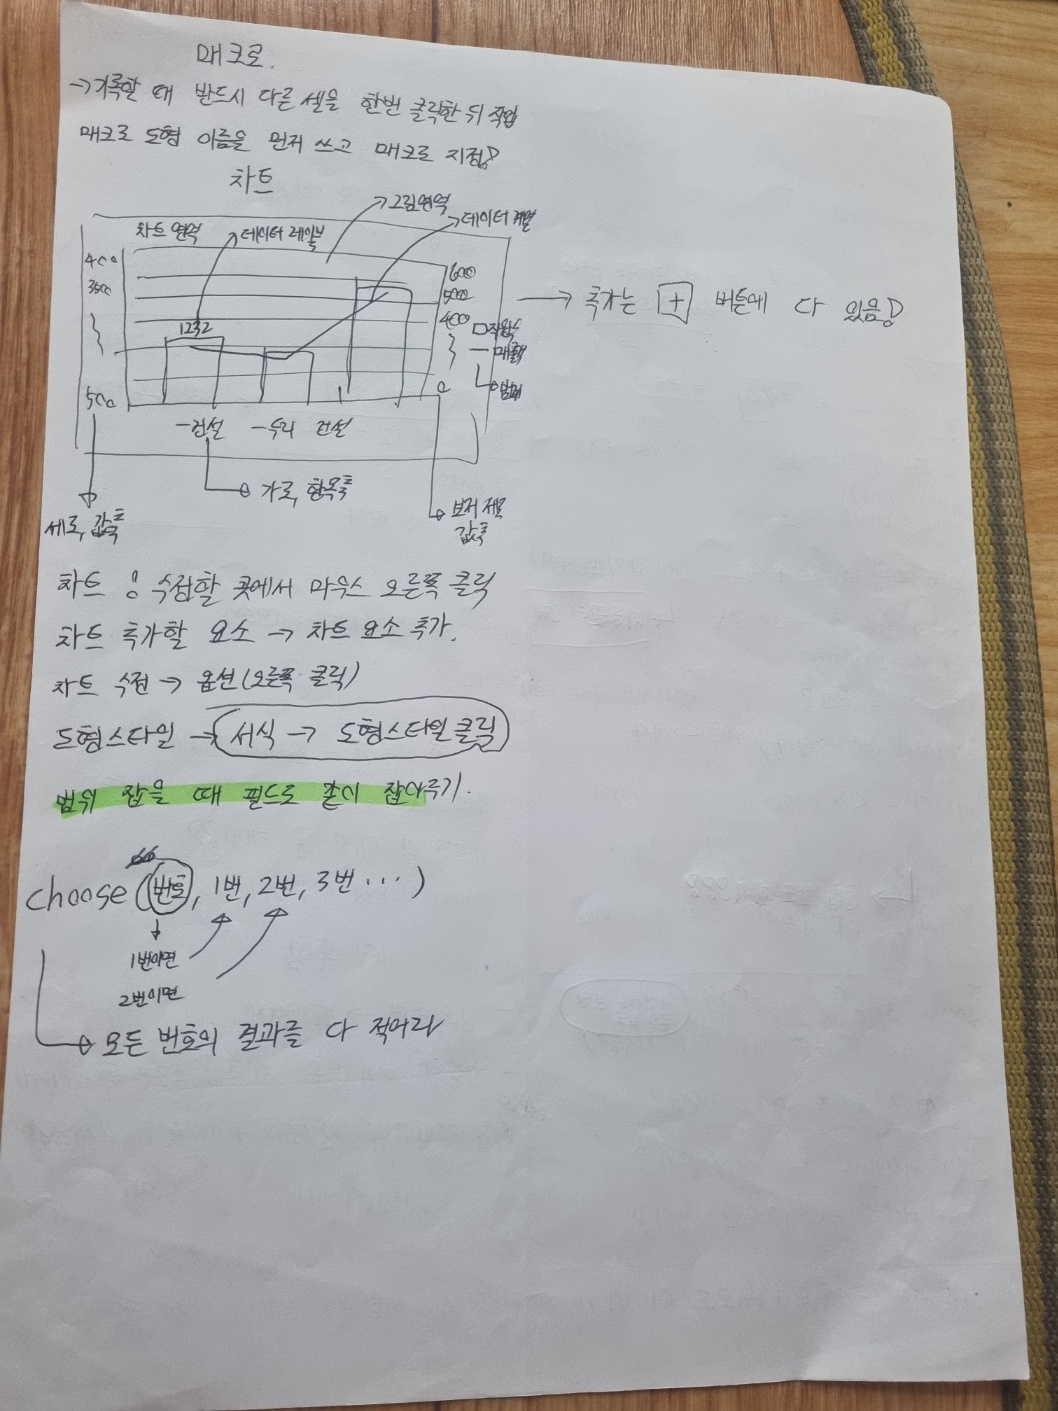 매크로.
→ 기록할 때 반드시 다른 셀을 한번 클릭한 뒤 작업
매크로 도형 이름을 먼저 쓰고 매크로 지정!
차트
그림영역
차트 영역 데이터 레이블 데이터 계열
400 600
3500 500
400
1232
작업수
매출액
범례
500 0
건설 우리 건설
→ 추가는 + 버튼에 다 있음!
가로, 항목축
세로, 값축
보저 제목
값축
차트 : 수정할 곳에서 마우스 오른쪽 클릭
차트 추가할 요소 → 차트 요소 추가.
차트 수정 → 옵션(오른쪽 클릭)
도형스타일 → 서식 → 도형스타일 클릭
범위 잡을 때 필드로 같이 잡아주기.
choose(번호, 1번, 2번, 3번 ···)
1번이면
2번이면
모든 번호의 결과를 다 적어라